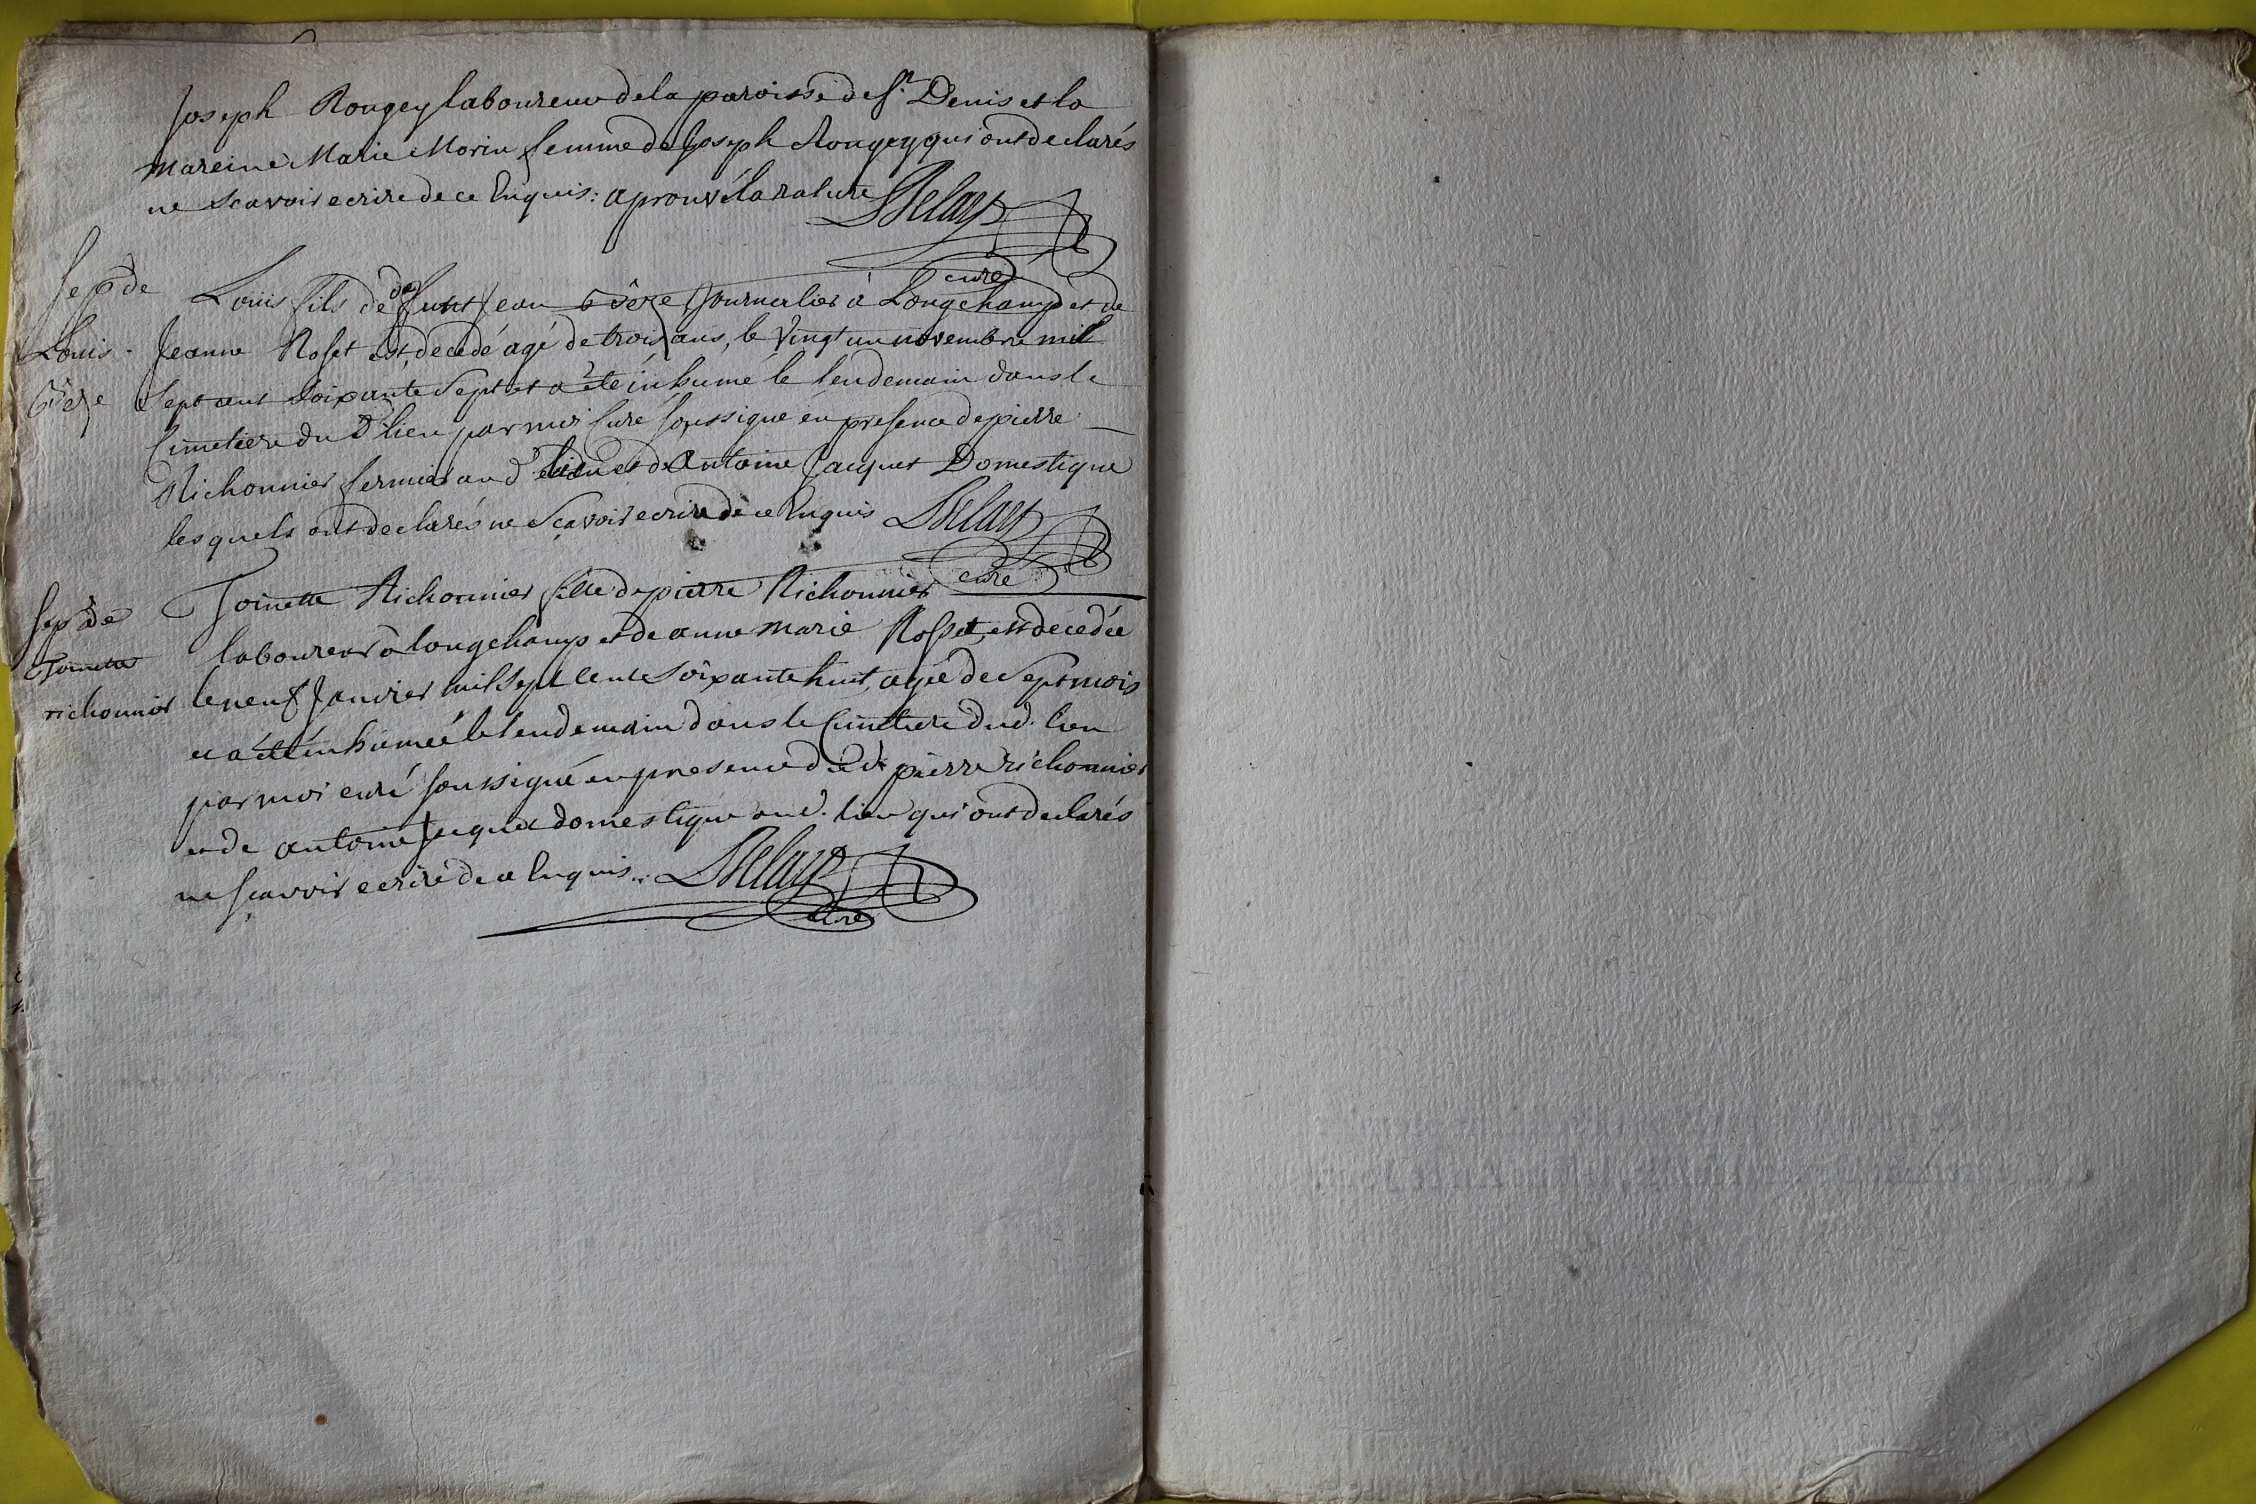 Joseph Rongey laboureur de la paroisse de St. Denis et la
mareine Marie Morin femme de Joseph Rongey qui ont declarés
ne scavoir ecrire de ce Enquis: aprouvé la rature
curé
Sep.re de
Louis
Louis fils de defunt Jean journalier à Longchamp et de
Jeanne Roset est decedé agé de trois ans, le vingt un novembre mil
sept cent soixante sept et a été inhumé le lendemain dans le
Cimetiere du d. lieu par moi Curé soussigné en presence de pierre
Richonnier fermier au d. lieu et d'Antoine Jacquet Domestique
lesquels ont declarés ne sçavoir ecrire de ce Enquis
curé
Sep.re de
Toinette
richonnier
Toinette Richonnier fille de pierre Richonnier
laboureur à longchamp et de anne marie Rosset, est decedée
le neuf Janvier mil sept cent soixante huit, agée de sept mois
et a été inhumée le lendemain dans le Cimetiere dud. lieu
par moi curé soussigné en presence dud. pierre richonnier
et de antoine Jacquet domestique aud. lieu qui ont declarés
ne sçavoir ecrire de ce Enquis.
curé